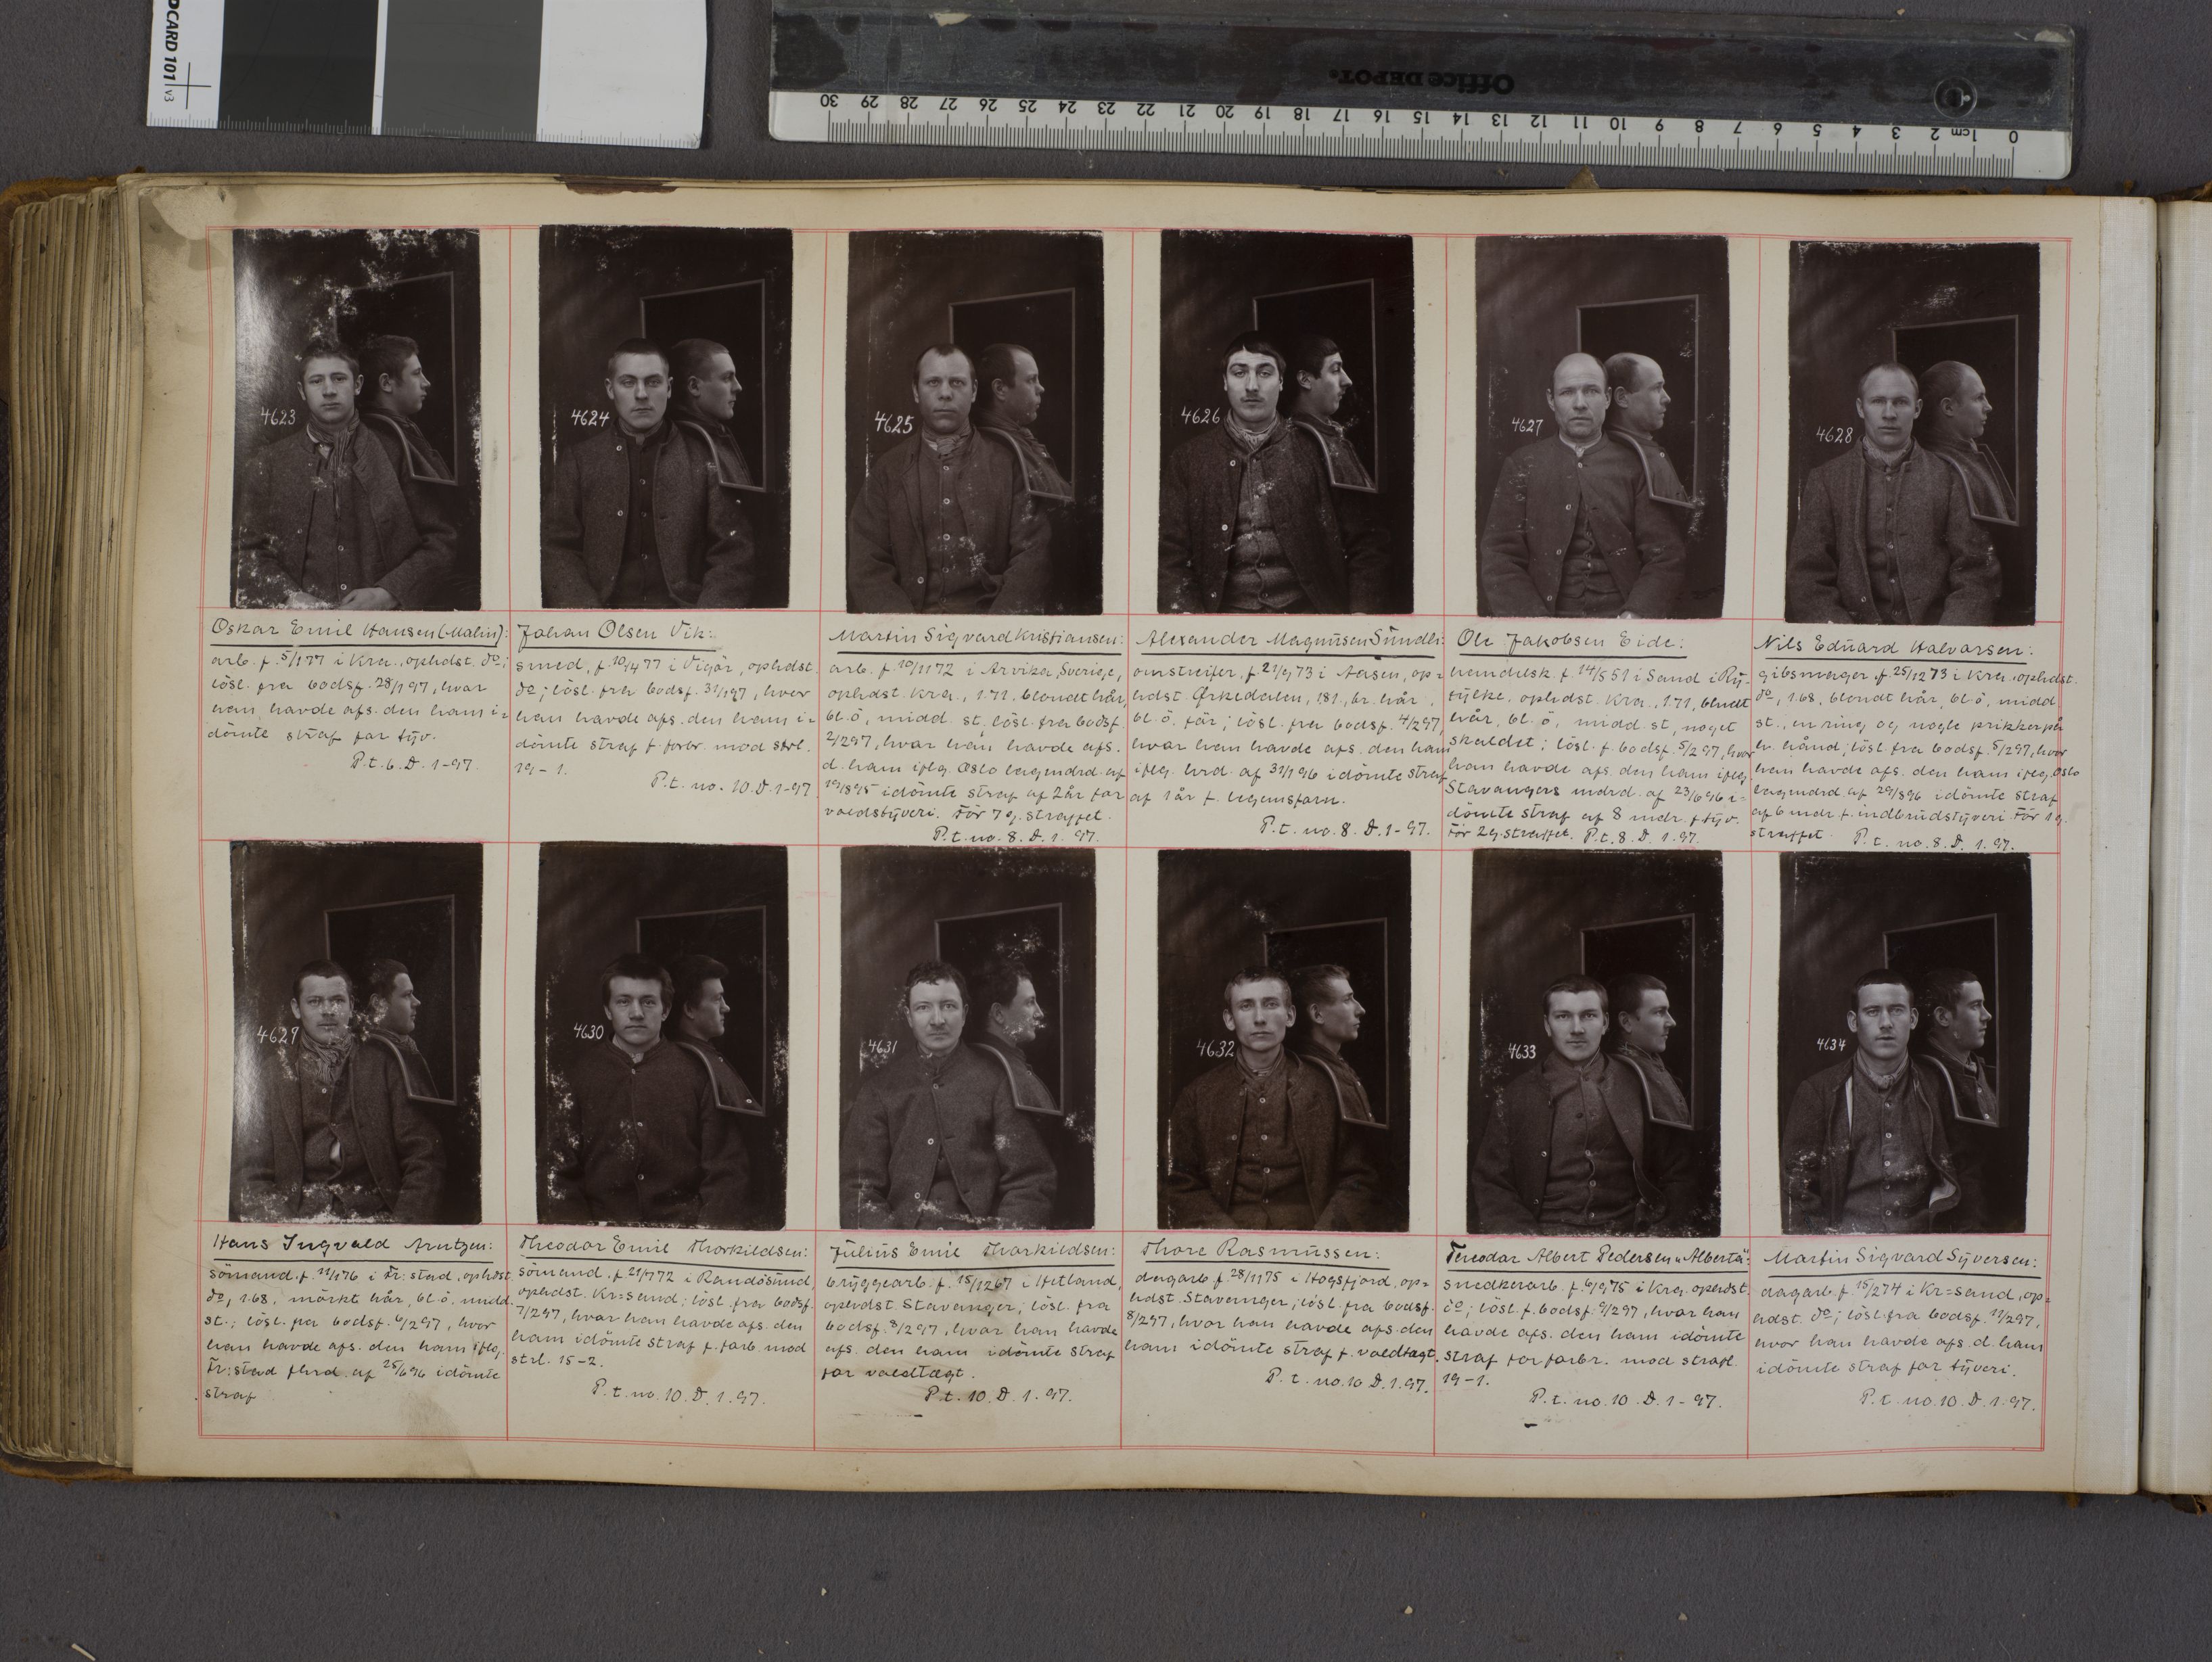 DCARD 101 v3
Office DEPOT.
30 29 28 27 26 25 24 23 22 21 20 19 18 17 16 15 14 13 12 11 10 9 8 7 6 5 4 3 2 1cm 0
4623
4624
4625
4626
4627
4628
Oskar Emil Hansen (-Malin):
arb. f. 5/1 77 i Kra., ophdst. do;
lösl. fra bodsf. 28/1 97, hvor
han havde afs. den ham i=
dömte straf for tyv.
P.t. 6. D. 1-97.
Johan Olsen Vik:
smed, f. 10/4 77 i Vigör, ophdst.
do; lösl. fra bodsf. 31/1 97, hvor
han havde afs. den ham i=
dömte straf f. forbr. mod strl.
19-1.
P.t. no. 10. D. 1-97
Martin Sigvard Kristiansen:
arb. f. 10/11 72 i Arvika, Sverige,
ophdst. Kra., 1.71, blondt hår,
bl. ö, midd. st., lösl. fra bodsf.
2/2 97, hvor han havde afs.
d. ham iflg. Oslo lagmdrd. af
19/8 95 idömte straf af 2 år for
voldstyveri. För 7 g. straffet.
P.t. no. 8. D. 1. 97.
Alexander Magnusen Sundli:
omstreifer, f. 21/9 73 i Aasen, op=
hdst. Ørkedalen, 1.81, br. hår,
bl. ö. för; lösl. fra bodsf. 4/2 97,
hvor han havde afs. den ham
iflg. hrd. af 31/1 96 idömte straf
af 1 år f. legemsforn.
P.t. no. 8. D. 1-97.
Ole Jakobsen Eide:
handelsk. f. 14/5 51 i Sand i Ry=
fylke, ophdst. Kra., 1.71, blondt
hår, bl. ö, midd. st., noget
skaldet; lösl. f. bodsf. 5/2 97, hvor
han havde afs. den ham iflg.
Stavangers mdrd. af 23/6 96 i=
dömte straf af 8 mdr. f. tyv.
För 2 g. straffet. P.t. 8. D. 1. 97.
Nils Eduard Halvorsen:
gibsmager, f. 25/12 73 i Kra., ophdst.
do, 1.68, blondt hår, bl. ö, midd.
st., en ring og nogle prikker på
h. hånd; lösl. fra bodsf. 5/2 97, hvor
han havde afs. den ham iflg. Oslo
lagmdrd. af 29/8 96 idömte straf
af 6 mdr. f. indbrudstyveri. För 1 g.
straffet. P.t. no. 8. D. 1. 97.
4629
4630
4631
4632
4633
4634
Hans Ingvald Arntzen:
sömand, f. 11/1 76 i Fr:stad, ophdst.
do, 1.68, mörkt hår, bl. ö. midd.
st.; lösl. fra bodsf. 6/2 97, hvor
han havde afs. den ham iflg.
Fr:stad fhrd. af 25/6 96 idömte
straf
Theodor Emil Thorkildsen:
sömand, f. 21/1 72 i Randösund,
ophdst. Kr=sand; lösl. fra bodsf.
7/2 97, hvor han havde afs. den
ham idömte straf f. forb. mod
strl. 15-2.
P.t. no. 10. D. 1. 97.
Julius Emil Thorkildsen:
bryggearb. f. 15/12 67 i Hetland,
ophdst. Stavanger; lösl. fra
bodsf. 8/2 97, hvor han havde
afs. den ham idömte straf
for voldtægt.
P.t. 10. D. 1. 97.
Thore Rasmussen:
dagarb. f. 28/11 75 i Högsfjord, op=
hdst. Stavanger; lösl. fra bodsf.
8/2 97, hvor han havde afs. den
ham idömte straf f. voldtægt.
P.t. no. 10 D. 1. 97.
Teodor Albert Pedersen "Alberta":
snedkerarb. f. 6/9 75 i Kra., ophdst.
do; lösl. f. bodsf. 9/2 97, hvor han
havde afs. den ham idömte
straf for forbr. mod strafl.
19-1.
P.t. no. 10 D. 1-97.
Martin Sigvard Syversen:
dagarb. f. 15/2 74 i Kr=sand, op=
hdst. do; lösl. fra bodsf. 11/2 97,
hvor han havde afs. d. ham
idömte straf for tyveri.
P.t. no. 10. D. 1. 97.